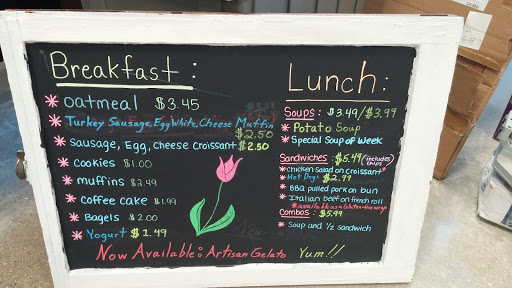 Breakfast:
* oatmeal $3.45
* Turkey Sausage, Egg White, Cheese Muffin
$2.50
* sausage, Egg, cheese croissant $2.50
* cookies $1.00
* muffins $2.49
* coffee cake $1.99
* Bagels $2.00
* Yogurt $1.49
Lunch:
Soups: $3.49/$3.99
* Potato Soup
* Special Soup of Week
Sandwiches: $5.49 (includes chips)
* Chicken Salad on croissant*
* Hot Dog: $2.99
* BBQ pulled pork on bun
* Italian beef on french roll
*available as a Gluten-free wrap
Combos: $5.99
* Soup and 1/2 sandwich
Now Available: Artisan Gelato Yum!!